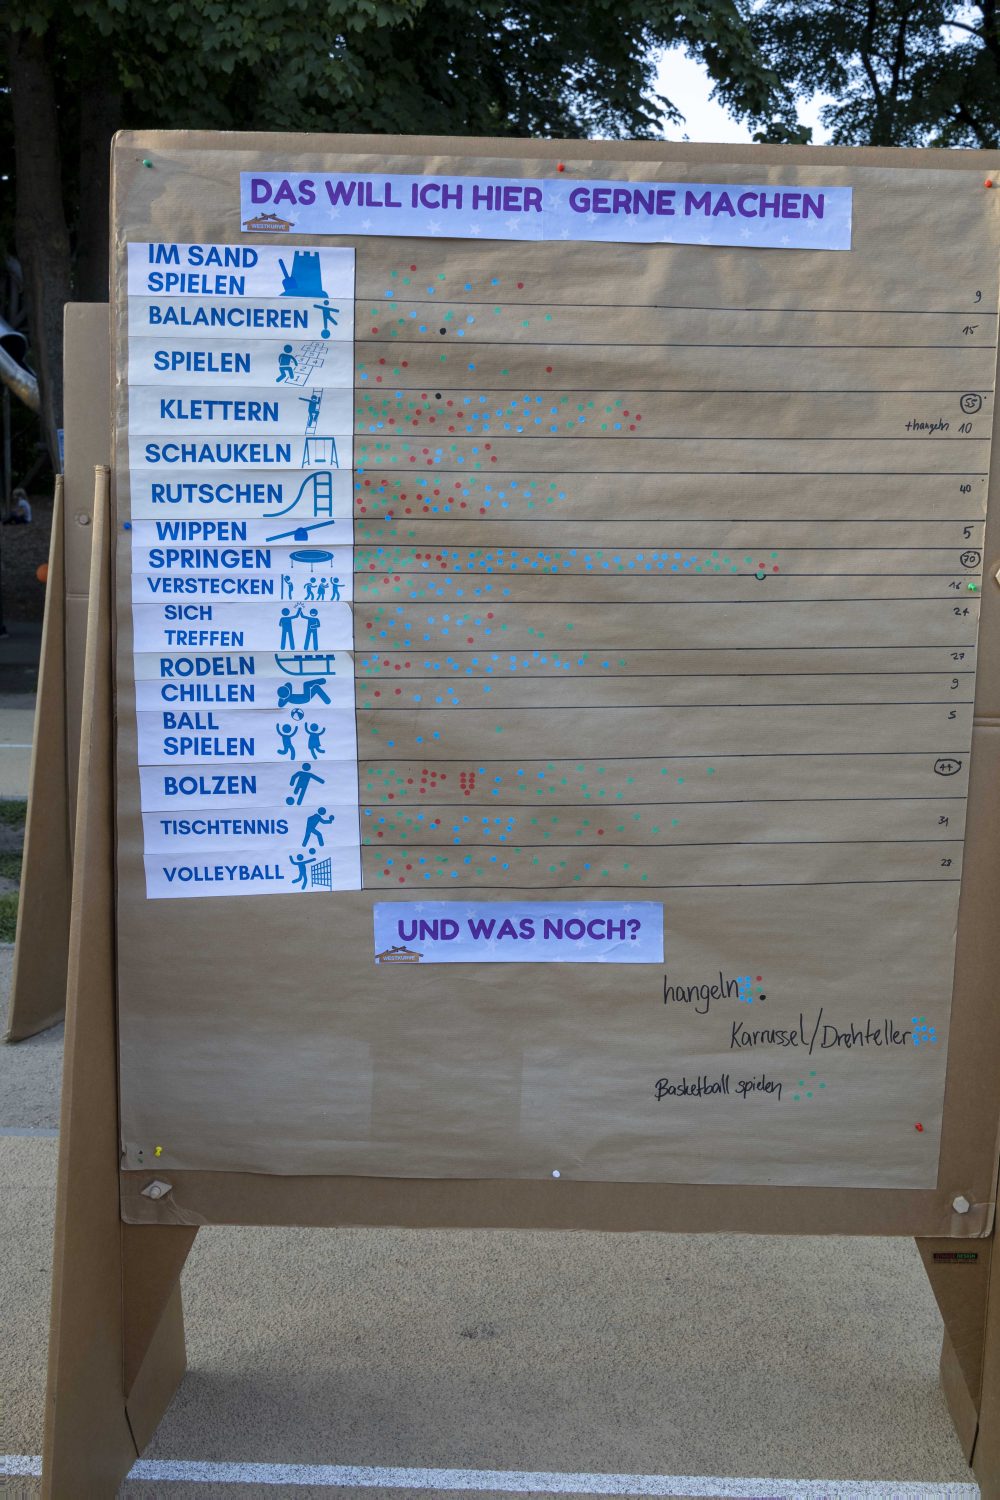 DAS WILL ICH HIER GERNE MACHEN
WESTKURVE
IM SAND
SPIELEN
9
BALANCIEREN
15
SPIELEN
KLETTERN
55
+hangeln 10
SCHAUKELN
RUTSCHEN
40
WIPPEN
5
SPRINGEN
70
VERSTECKEN
16
SICH
TREFFEN
24
RODELN
27
CHILLEN
9
BALL
SPIELEN
5
BOLZEN
44
TISCHTENNIS
31
VOLLEYBALL
28
UND WAS NOCH?
WESTKURVE
hangeln
Karrussel/Drehteller
Basketball spielen